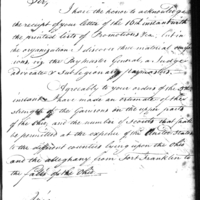 Sir,
I have the honor to acknowledge
the receipt of your letter of the 10th instant with
the printed lists of Promotions &ca, but in
the organization I discover due material
by the Paymaster General, a Judge
advocate & Sub Legionary Paymasters.
Agreeably to your orders of the
instant I have made an estimate of the
strength of the Garrisons on the upper parts
of the Ohio, and the number of scouts that
be permitted at the expense of the United States
to the different counties lying upon the Ohio
and the Alleghany from Fort Franklin to
the falls of the Ohio